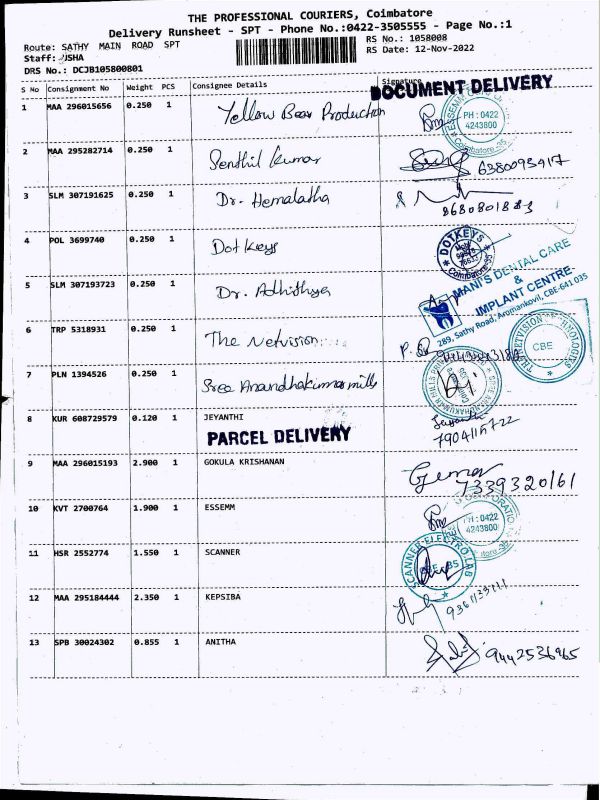 THE PROFESSIONAL COURIERS, Coimbatore
Delivery Runsheet - SPT - Phone No.:0422-3505555 - Page No.:1
Route: SATHY MAIN ROAD SPT
RS No.: 1058008
Staff: USHA
RS Date: 12-Nov-2022
DRS No.: DCJB105800801
S No Consignment No Weight PCS Consignee Details Signature
DOCUMENT DELIVERY
1 MAA 296015656 0.250 1 Yellow Bear Production
PH : 0422
4243800
Coimbatore-35
2 MAA 295282714 0.250 1 Senthil Kumar
6380093417
3 SLM 307191625 0.250 1 Dr. Hemalatha
8680801883
4 POL 3699740 0.250 1 Dot Keys
DOTKEYS
Coimbatore-35
5 SLM 307193723 0.250 1 Dr. Adhithya
MANI'S DENTAL CARE
&
IMPLANT CENTRE-
289, Sathy Road, Aromankovil, CBE-641 035
6 TRP 5318931 0.250 1 The Netvision
CBE
7 PLN 1394526 0.250 1 Sree Anandhakumar mills
8 KUR 608729579 0.120 1 JEYANTHI
7904115722
PARCEL DELIVERY
9 MAA 296015193 2.900 1 GOKULA KRISHANAN
7339320161
10 KVT 2700764 1.900 1 ESSEMM
PH : 0422
4243800
11 HSR 2552774 1.550 1 SCANNER
SCANNER-ELECTRO LAB
12 MAA 295184444 2.350 1 KEPSIBA
13 SPB 30024302 0.855 1 ANITHA
9442536965